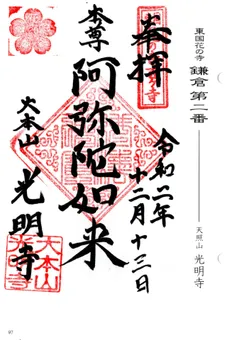 東国花の寺 鎌倉第二番
天照山 光明寺
奉拝
令和二年
十二月十三日
本尊
阿弥陀如来
大本山 光明寺
大本山
光明寺
97